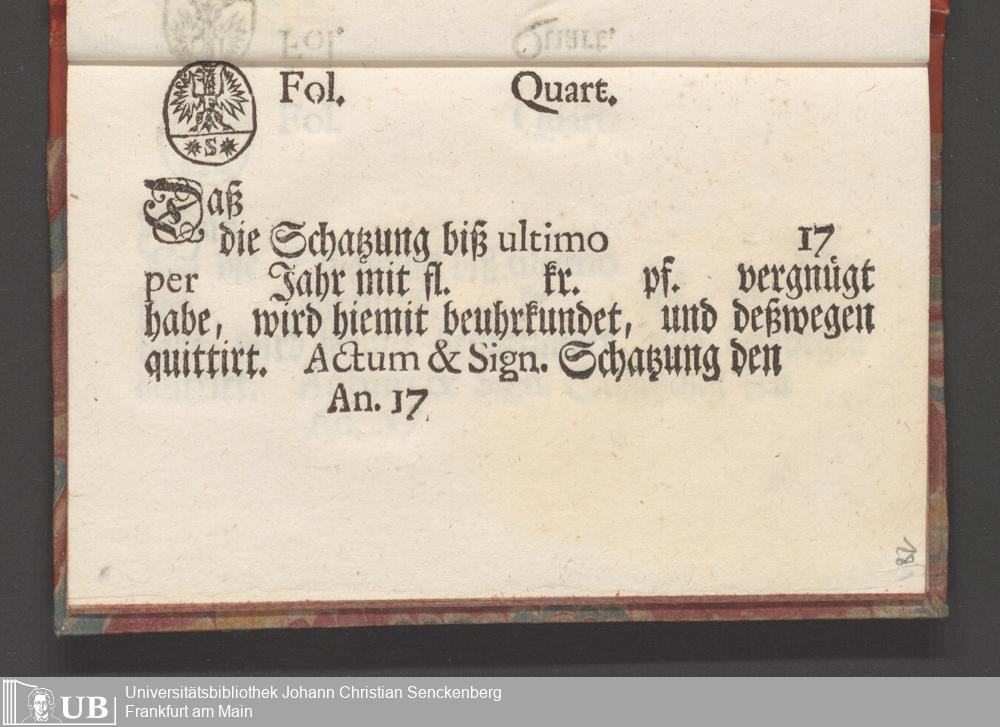 Fol. Quart.
S
Daß
die Schatzung biß ultimo 17
per Jahr mit fl. kr. pf. vergnügt
habe, wird hiemit beuhrkundet, und deßwegen
quittirt. Actum & Sign. Schatzung den
An. 17
UB
Universitätsbibliothek Johann Christian Senckenberg
Frankfurt am Main